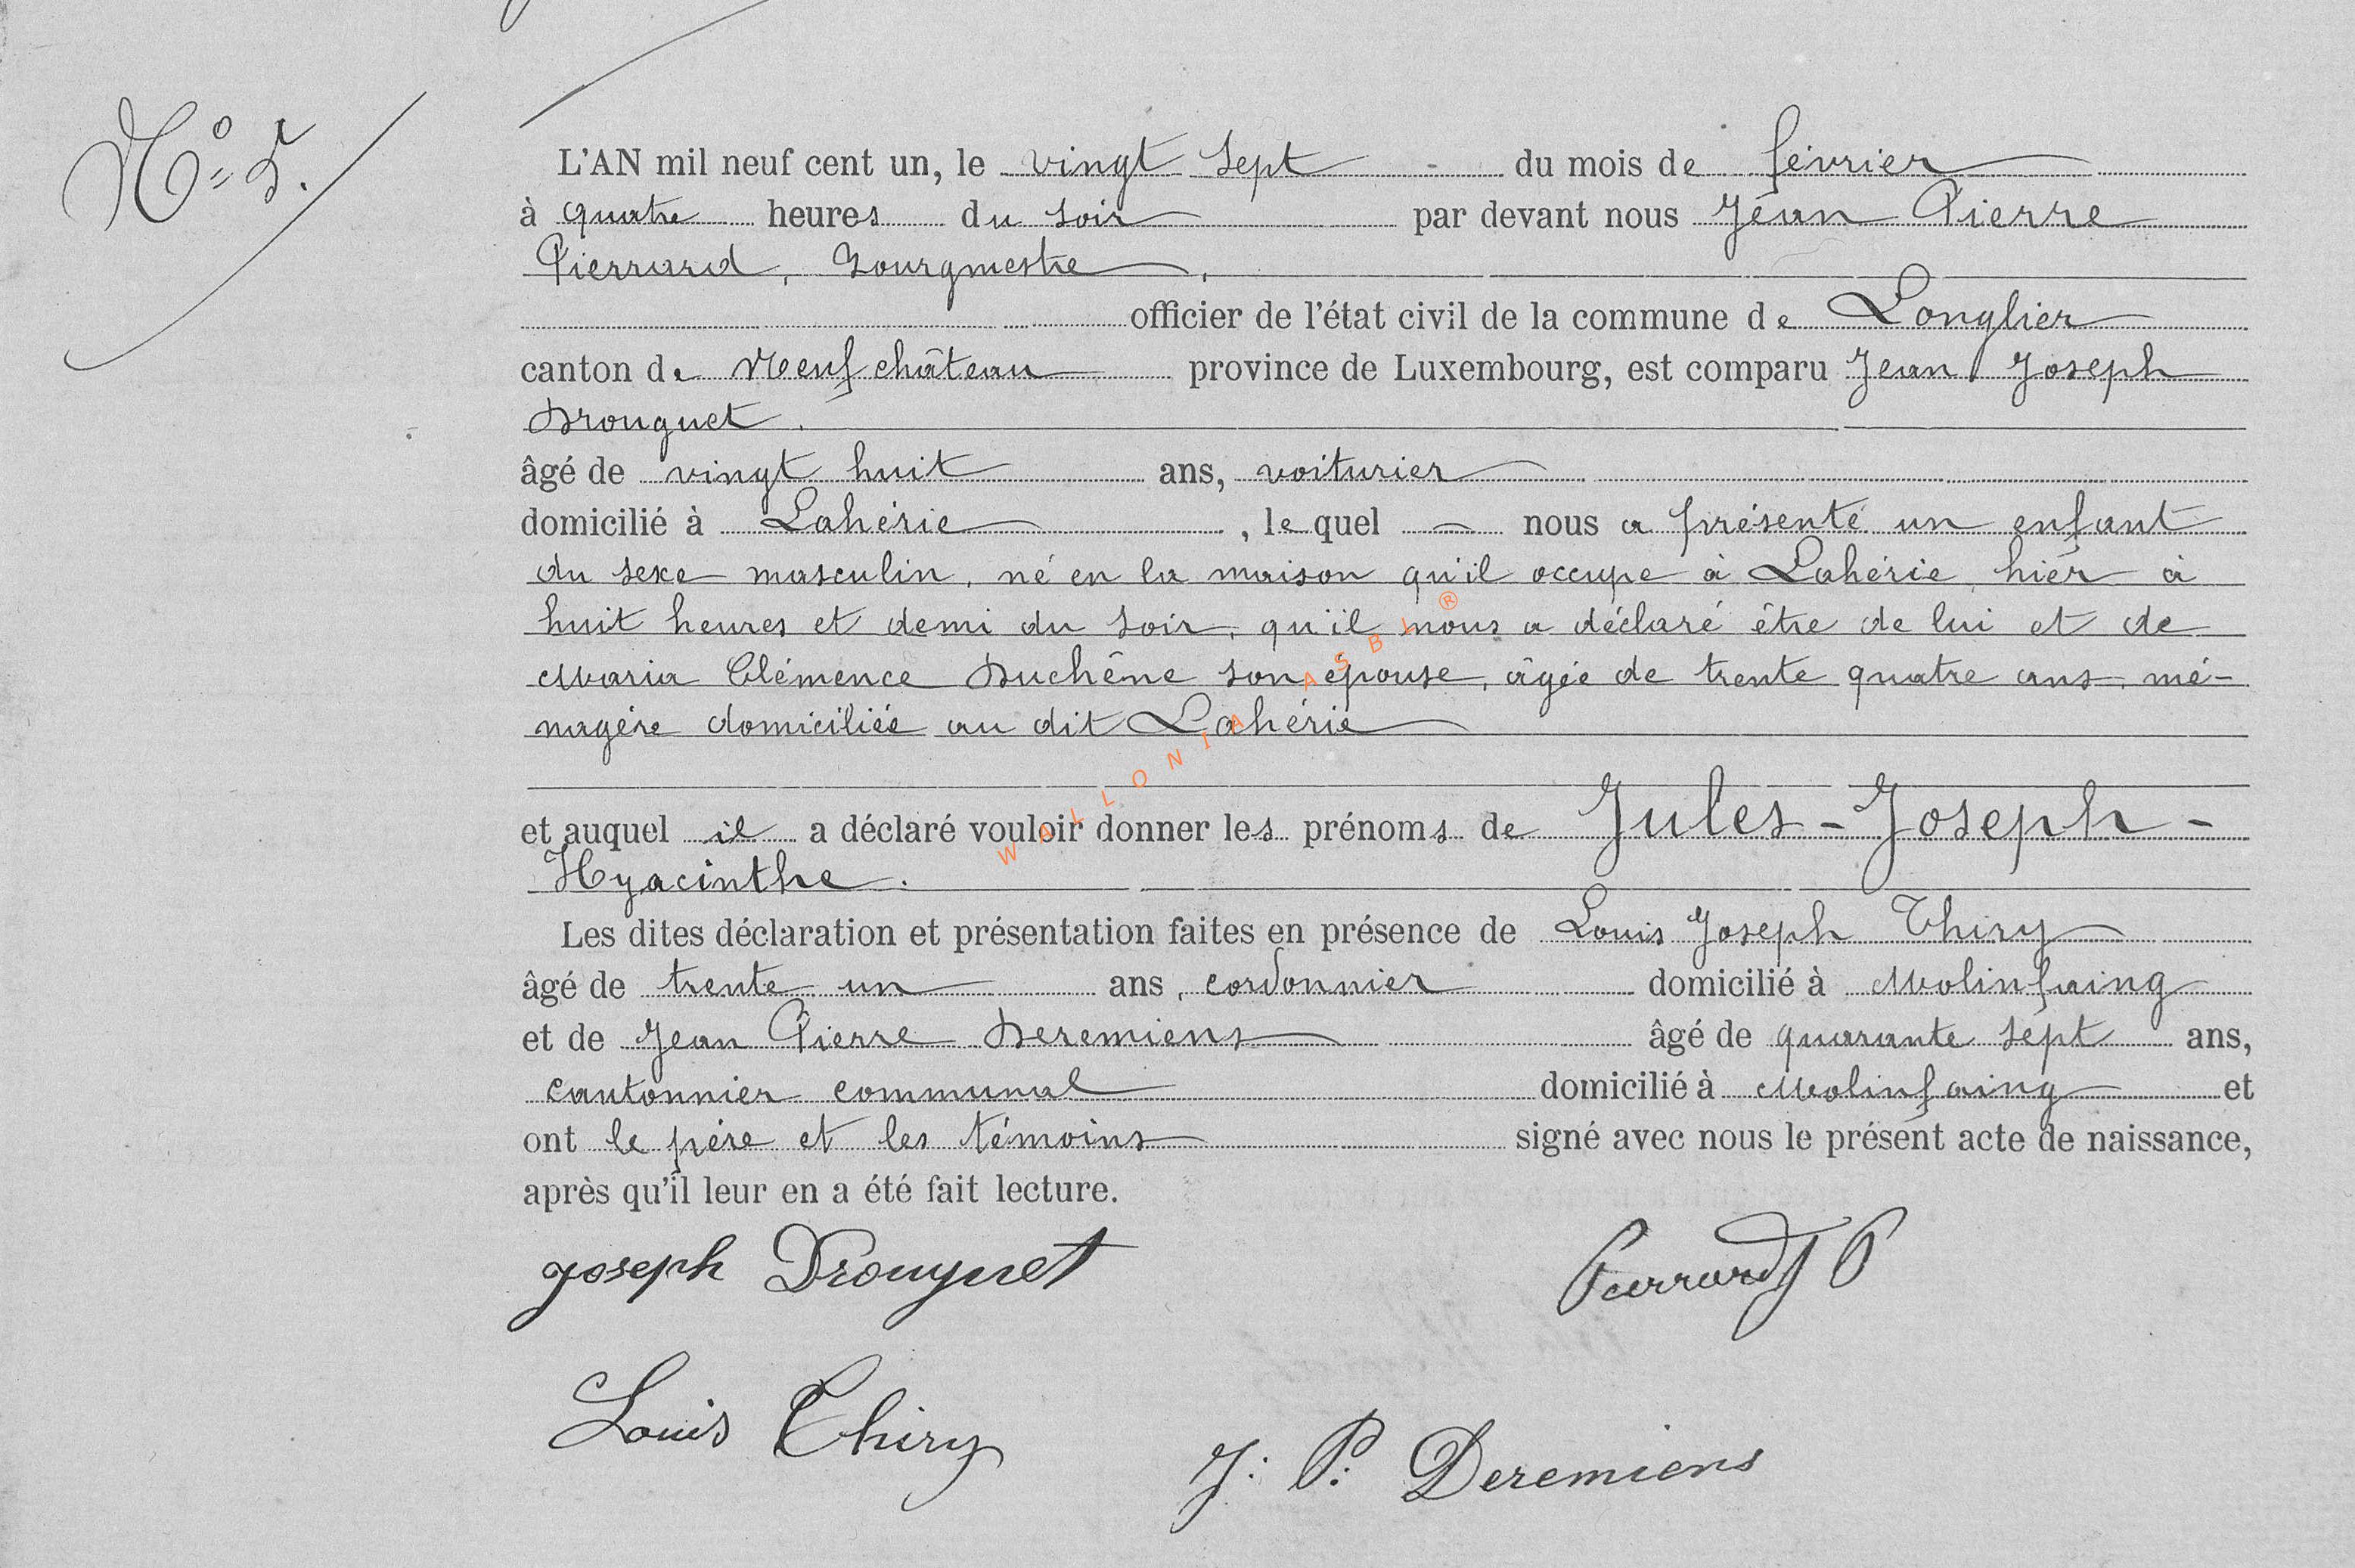 N° 5.
L'AN mil neuf cent un, le vingt sept du mois de février
à quatre heures du soir par devant nous Jean Pierre
Pierrard, Bourgmestre,
officier de l'état civil de la commune de Longlier
canton de Neufchâteau province de Luxembourg, est comparu Jean Joseph
Drouguet.
âgé de vingt huit ans, voiturier
domicilié à Lahérie, lequel nous a présenté un enfant
du sexe masculin, né en la maison qu'il occupe à Lahérie, hier à
huit heures et demi du soir, qu'il nous a déclaré être de lui et de
Maria Clémence Duchêne son épouse, âgée de trente quatre ans, mé-
nagère domiciliée au dit Lahérie
et auquel il a déclaré vouloir donner les prénoms de Jules-Joseph-
Hyacinthe.
Les dites déclaration et présentation faites en présence de Louis Joseph Thiry
âgé de trente un ans, cordonnier domicilié à Molinfaing
et de Jean Pierre Deremiens âgé de quarante sept ans,
cantonnier communal domicilié à Molinfaing et
ont le père et les témoins signé avec nous le présent acte de naissance,
après qu'il leur en a été fait lecture.
Joseph Drouguet Pierrard J P
Louis Thiry J: P: Deremiens
WALLONIA ASBL ®